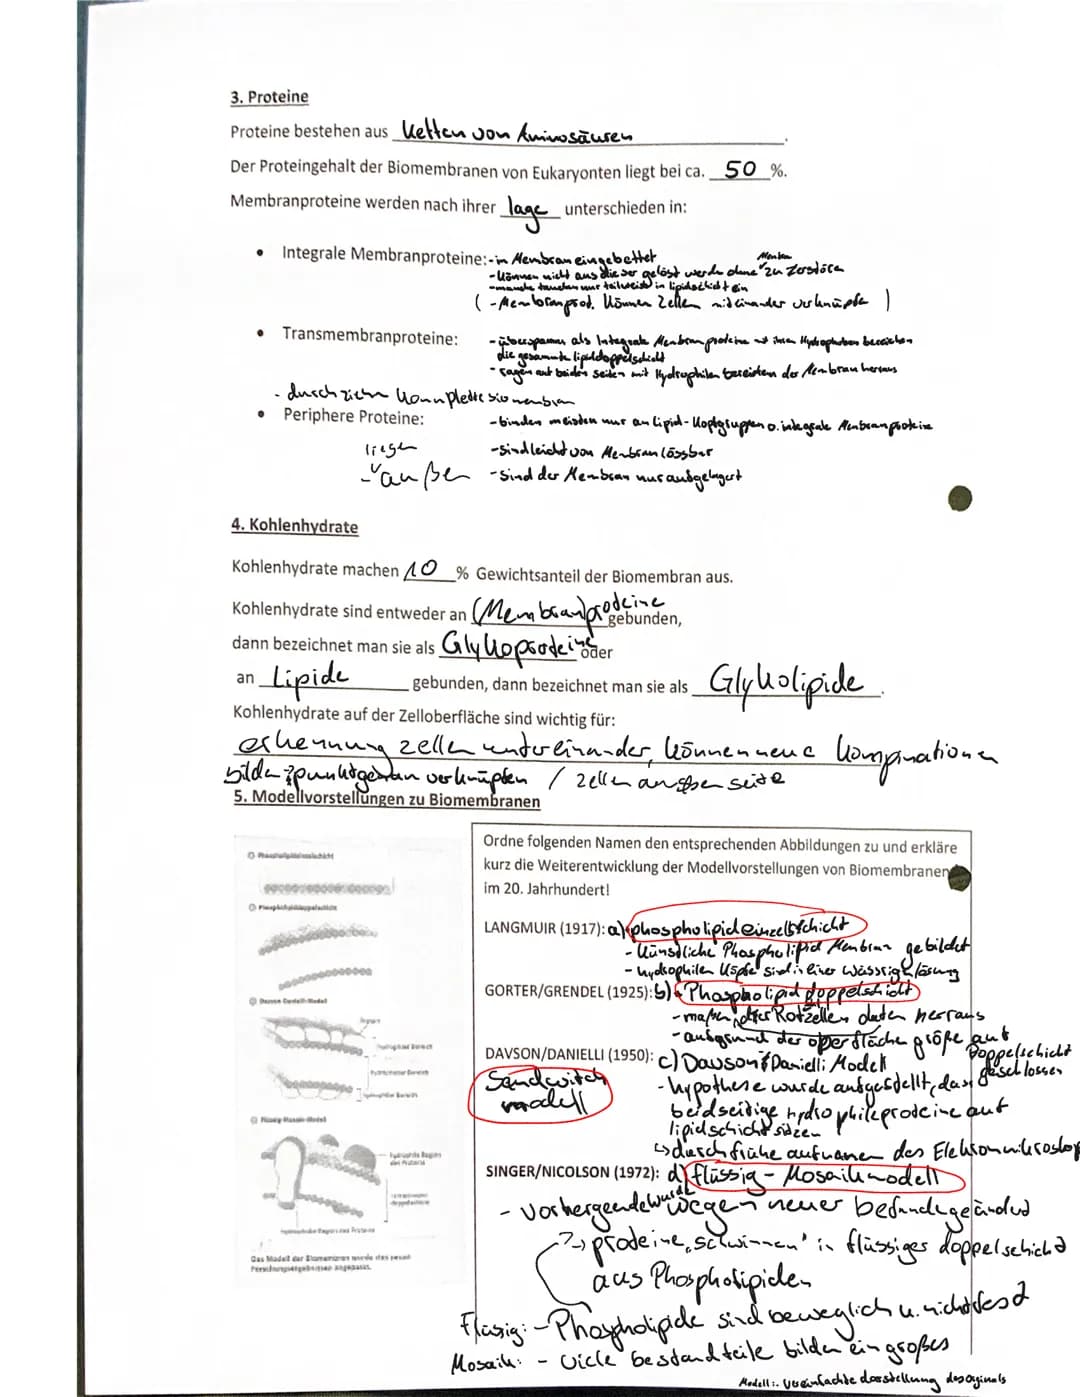 3. Proteine
Proteine bestehen aus Ketten von Aminosäuren.
Der Proteingehalt der Biomembranen von Eukaryonten liegt bei ca. 50 %.
Membranproteine werden nach ihrer lage unterschieden in:
• Integrale Membranproteine: - in Membran eingebettet
- können nicht aus dieser gelöst werden ohne Membran zu zerstören
- manche tauchen nur teilweise in lipidschicht ein
( - Membranprot. können Zellen miteinander verknüpfen )
• Transmembranproteine: - überspannen als Integrale Membranproteine mit ihren Hydrophoben bereichen
die gesammte lipiddoppelschicht
- ragen auf beiden seiten mit Hydrophilen bereichen der Membran heraus
- durchziehen komplette biomembran
• Periphere Proteine: - binden meisten nur an Lipid-Kopfgruppen o. integrale Membranproteine
liegen außen
- sind leicht von Membran lössbar
- sind der Membran nur aufgelagert
4. Kohlenhydrate
Kohlenhydrate machen 10 % Gewichtsanteil der Biomembran aus.
Kohlenhydrate sind entweder an (Membran)proteine gebunden,
dann bezeichnet man sie als Glykoproteine oder
an Lipide gebunden, dann bezeichnet man sie als Glykolipide.
Kohlenhydrate auf der Zelloberfläche sind wichtig für:
erkennung zellen untereinander, können neue kompinationen
bilden punktgenau verknüpfen / zellen aussen seite
5. Modellvorstellungen zu Biomembranen
Ordne folgenden Namen den entsprechenden Abbildungen zu und erkläre
kurz die Weiterentwicklung der Modellvorstellungen von Biomembranen
im 20. Jahrhundert!
LANGMUIR (1917): a) phospholipideinzelschicht
- künstliche Phospholipid Membran gebildet
- hydrophilen Köpfe sind in einer wässrigen lösung
GORTER/GRENDEL (1925): b) Phospholipid doppelschicht
- maßen der Rotzellen daten herraus
- aufgrund der oberfläche größe auf
Doppelschicht geschlossen
DAVSON/DANIELLI (1950): c) Dawson & Danielli Modell
Sandwitch modell
- hypothese wurde aufgestellt, dass
beidseitige hydrophile proteine auf
lipidschicht sitzen
↳ durch frühe aufnamen des Elektronmikroskop
SINGER/NICOLSON (1972): d) flüssig - Mosaikmodell
- vorhergeende wurde wegen neuer befunde geändert
?→ proteine "schwimmen" in flüssiges doppelschicht
aus Phospholipiden
Flüssig: - Phospholipide sind beweglich u. nicht fest
Mosaik: - viele bestandteile bilden ein großes
Modell: vereinfachte darstellung des orginals
Phospholipideinzelschicht
Phospholipiddoppelschicht
Davson-Danielli-Modell
Protein
hydrophiler Bereich
hydrophober Bereich
hydrophiler Bereich
Flüssig-Mosaik-Modell
hydrophile Region des Proteins
hydrophobe Region des Proteins
Das Modell der Biomembran wurde den neuen
Forschungsergebnissen angepasst.